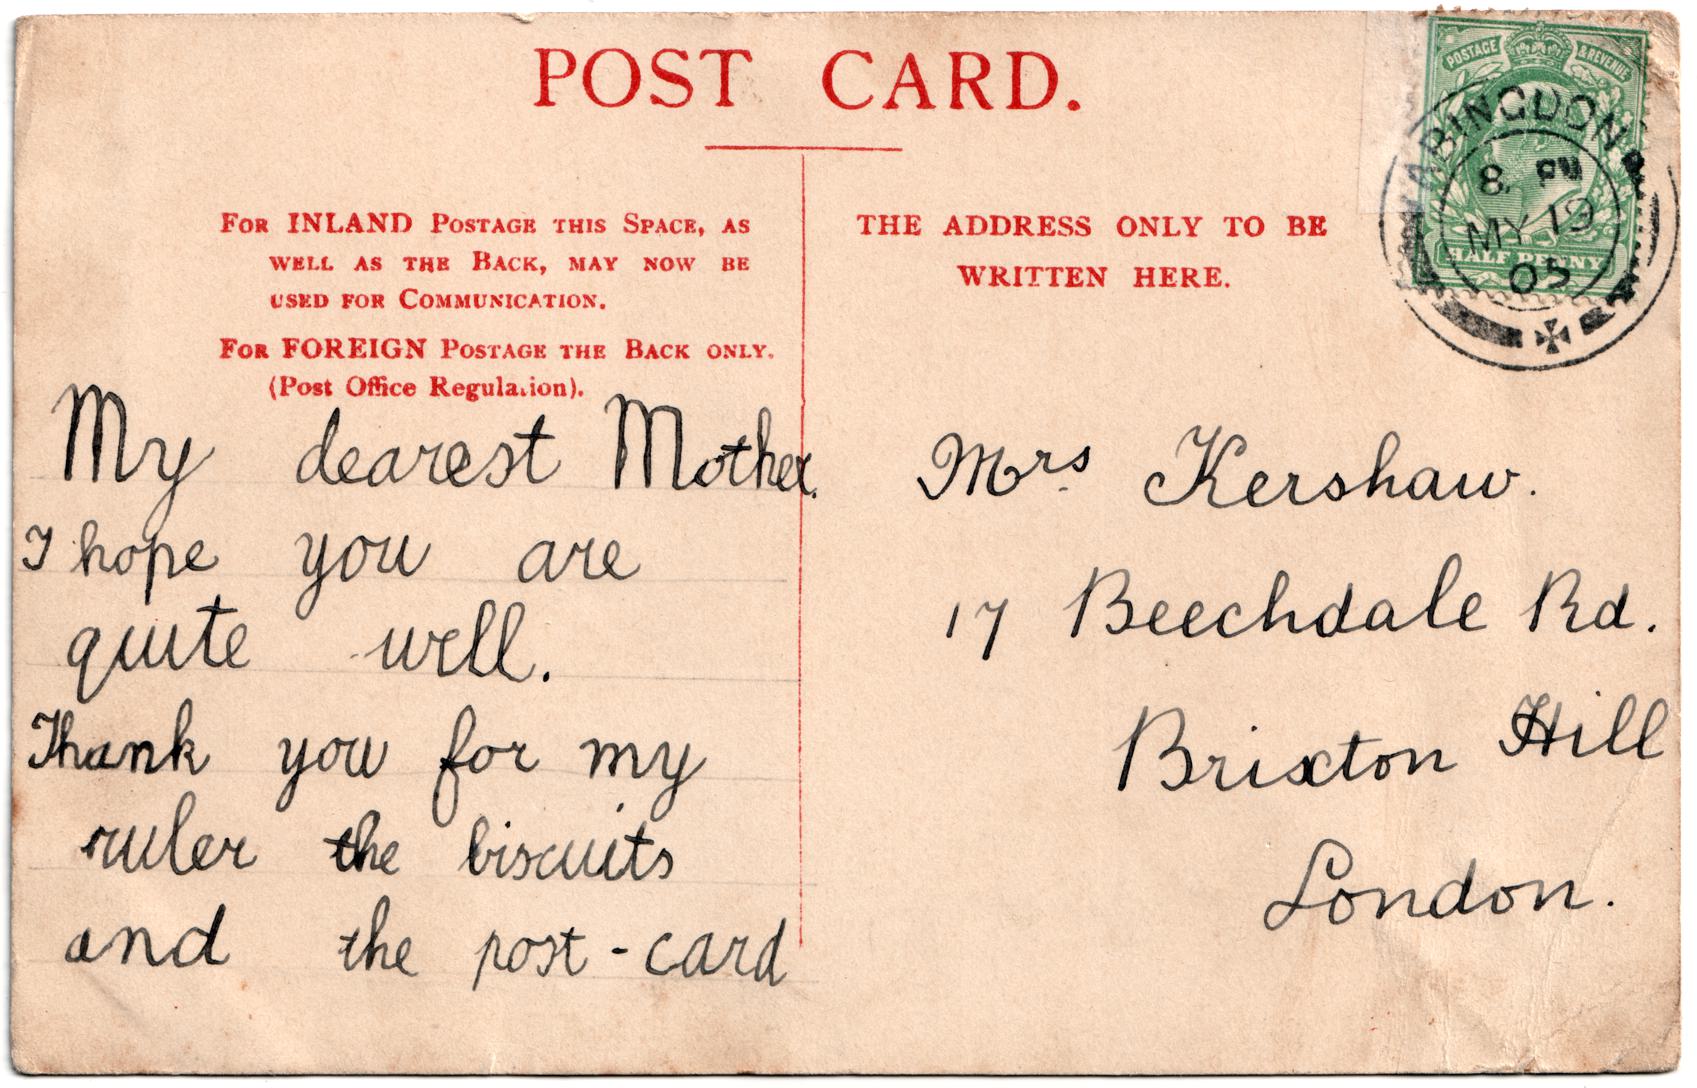 POST CARD.
FOR INLAND POSTAGE THIS SPACE, AS
WELL AS THE BACK, MAY NOW BE
USED FOR COMMUNICATION.
FOR FOREIGN POSTAGE THE BACK ONLY.
(Post Office Regulation).
THE ADDRESS ONLY TO BE
WRITTEN HERE.
POSTAGE & REVENUE
HALF PENNY
ABINGDON
8. PM
MY 19
05
My dearest Mother.
I hope you are
quite well.
Thank you for my
ruler the biscuits
and the post-card
Mrs Kershaw.
17 Beechdale Rd.
Brixton Hill
London.